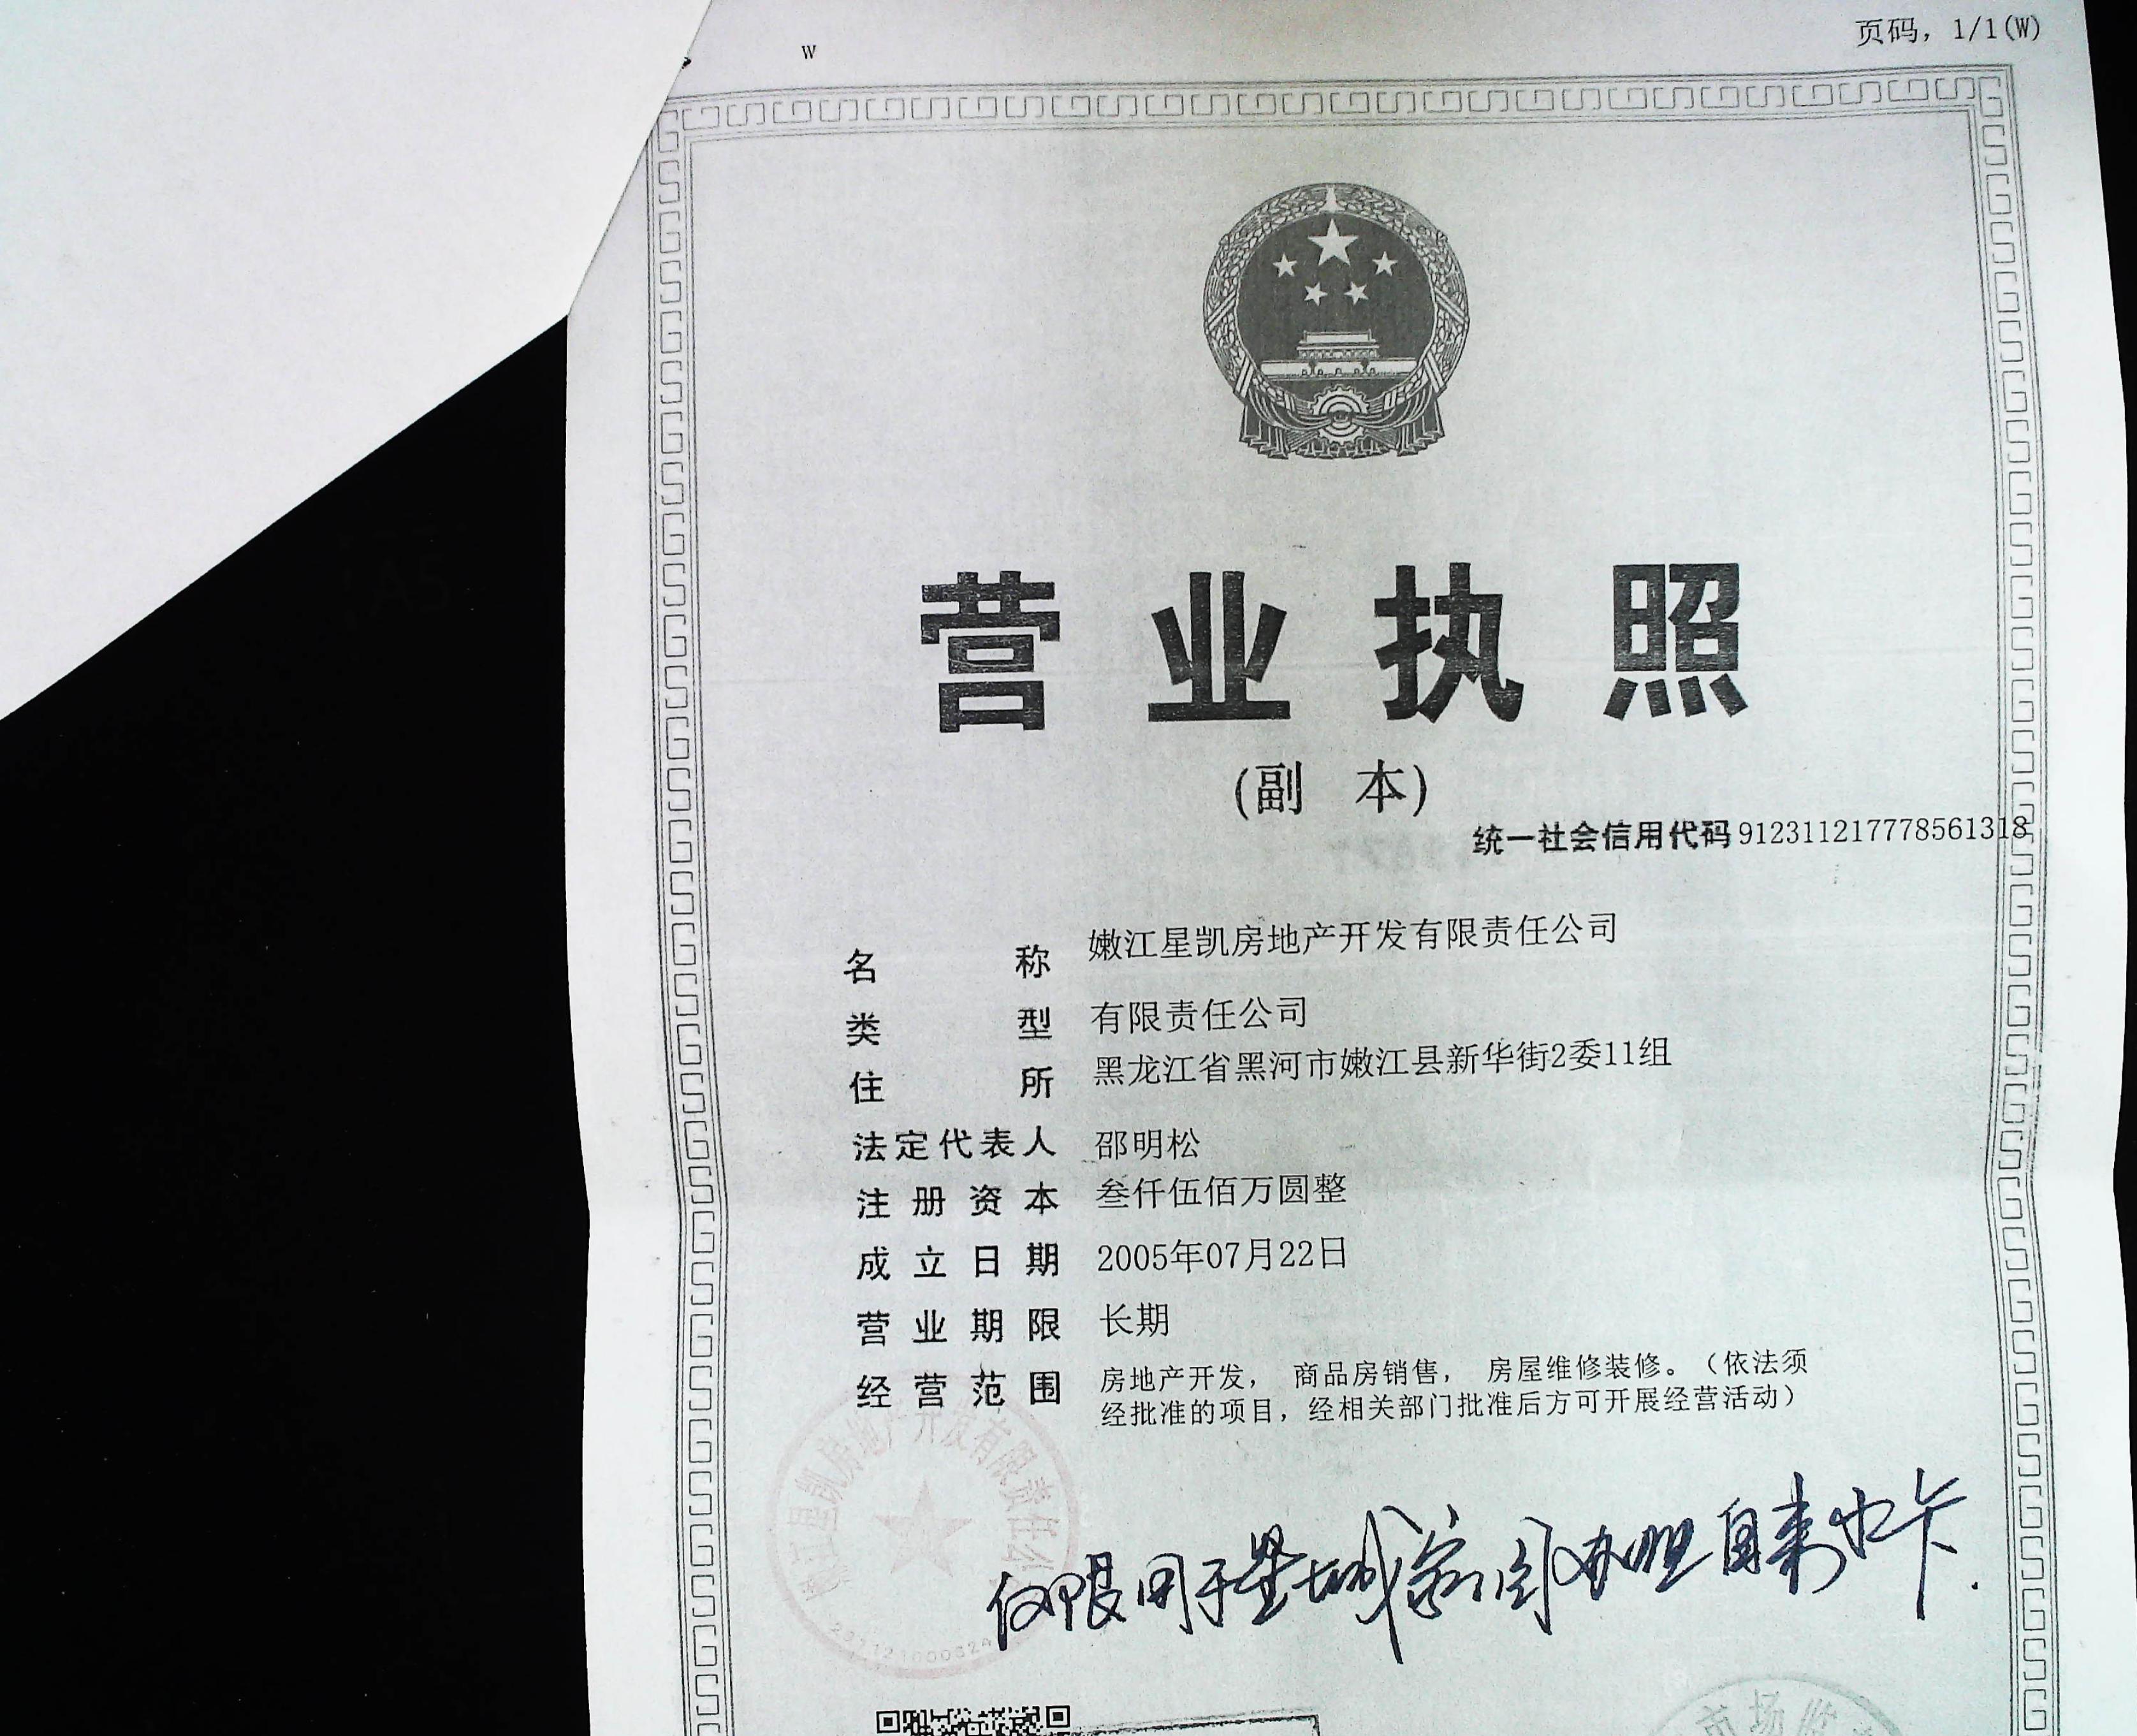 页码，1/1(W)
w
营业执照
(副 本)
统一社会信用代码 912311217778561318
名称 嫩江星凯房地产开发有限责任公司
类型 有限责任公司
住所 黑龙江省黑河市嫩江县新华街2委11组
法定代表人 邵明松
注册资本 叁仟伍佰万圆整
成立日期 2005年07月22日
营业期限 长期
经营范围 房地产开发， 商品房销售， 房屋维修装修。（依法须
经批准的项目，经相关部门批准后方可开展经营活动）
嫩江星凯房地产开发有限责任公
仅限用于星城 办理自来水卡.
市场监